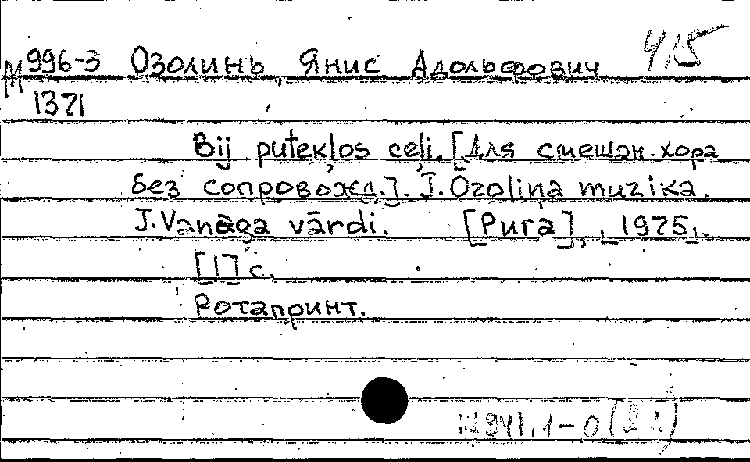 М 996-3 Озолинь, Янис Адольфович 415
1371
Bij putekļos ceļi. [Для смешан. хора
без сопровожд.]. J. Ozoliņa muzika.
J. Vanāga vārdi. [Рига], 1975.
[1] с.
Ротапринт.
941.1-0